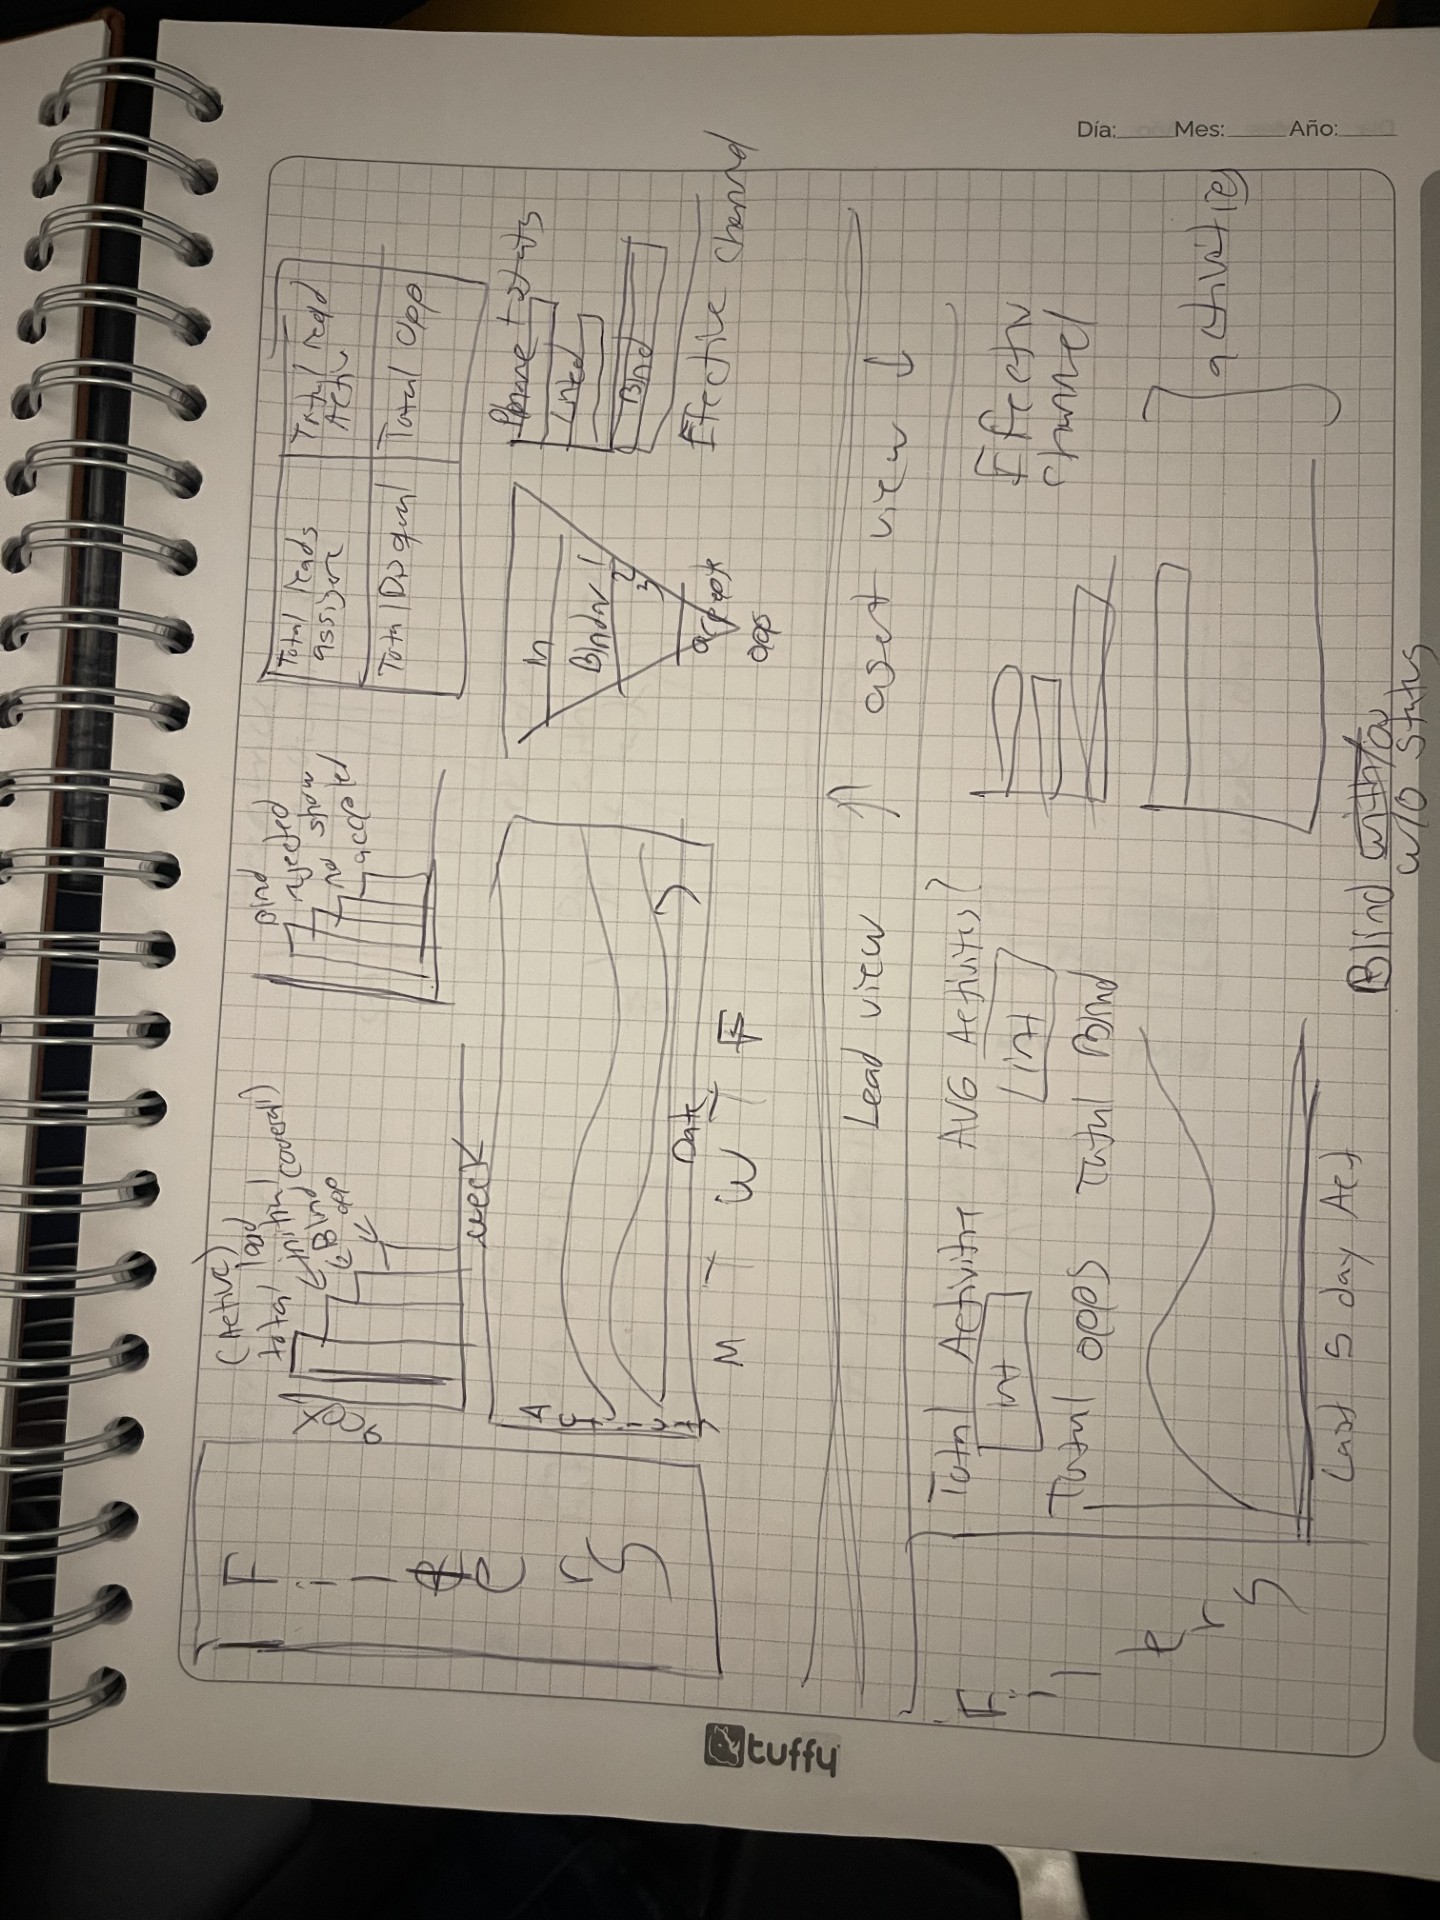 Filters
(Active)
total load
initial
Blind (overall)
opp
week
Blind
rejected
no show
accepted
Total leads
assigne
Total lead
Activ
Total Disqual
Total Opp
Activity
Date
M T W T F
In
Blind 1
2
3
accept
opp
Phone + stats
Lnked
Blind
Efective channel
Lead view ↑ agent view ↓
Filters
Total Activitie AVG Activites?
int int
Total opps Total Blind
Efectiv
channel
Last 5 day Act
activities
Blind
w/o status
tuffy
Día: Mes: Año: